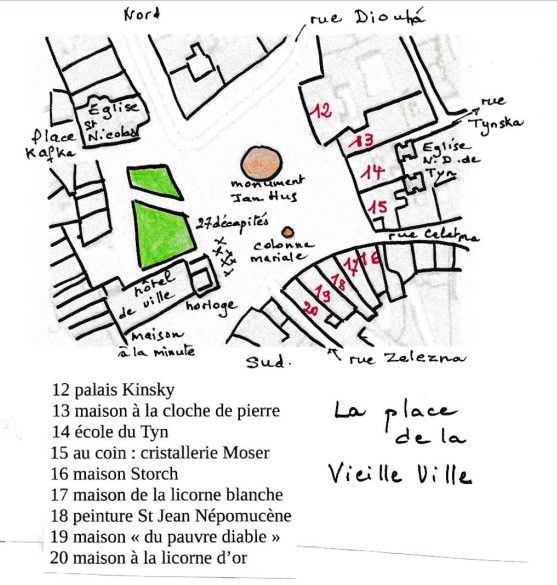 Nord
rue Diouhá
12
13
rue
Tynska
Eglise
St
Nicolas
place
Kafka
14
Eglise
N.D. de
Tyn
monument
Jan Hus
15
27 décapités
colonne
mariale
rue Celetna
hôtel
de ville
horloge
16
17
18
19
20
maison
à la minute
Sud.
rue Zelezna
12 palais Kinsky
13 maison à la cloche de pierre
14 école du Tyn
15 au coin : cristallerie Moser
16 maison Storch
17 maison de la licorne blanche
18 peinture St Jean Népomucène
19 maison « du pauvre diable »
20 maison à la licorne d’or
La place
de la
Vieille Ville